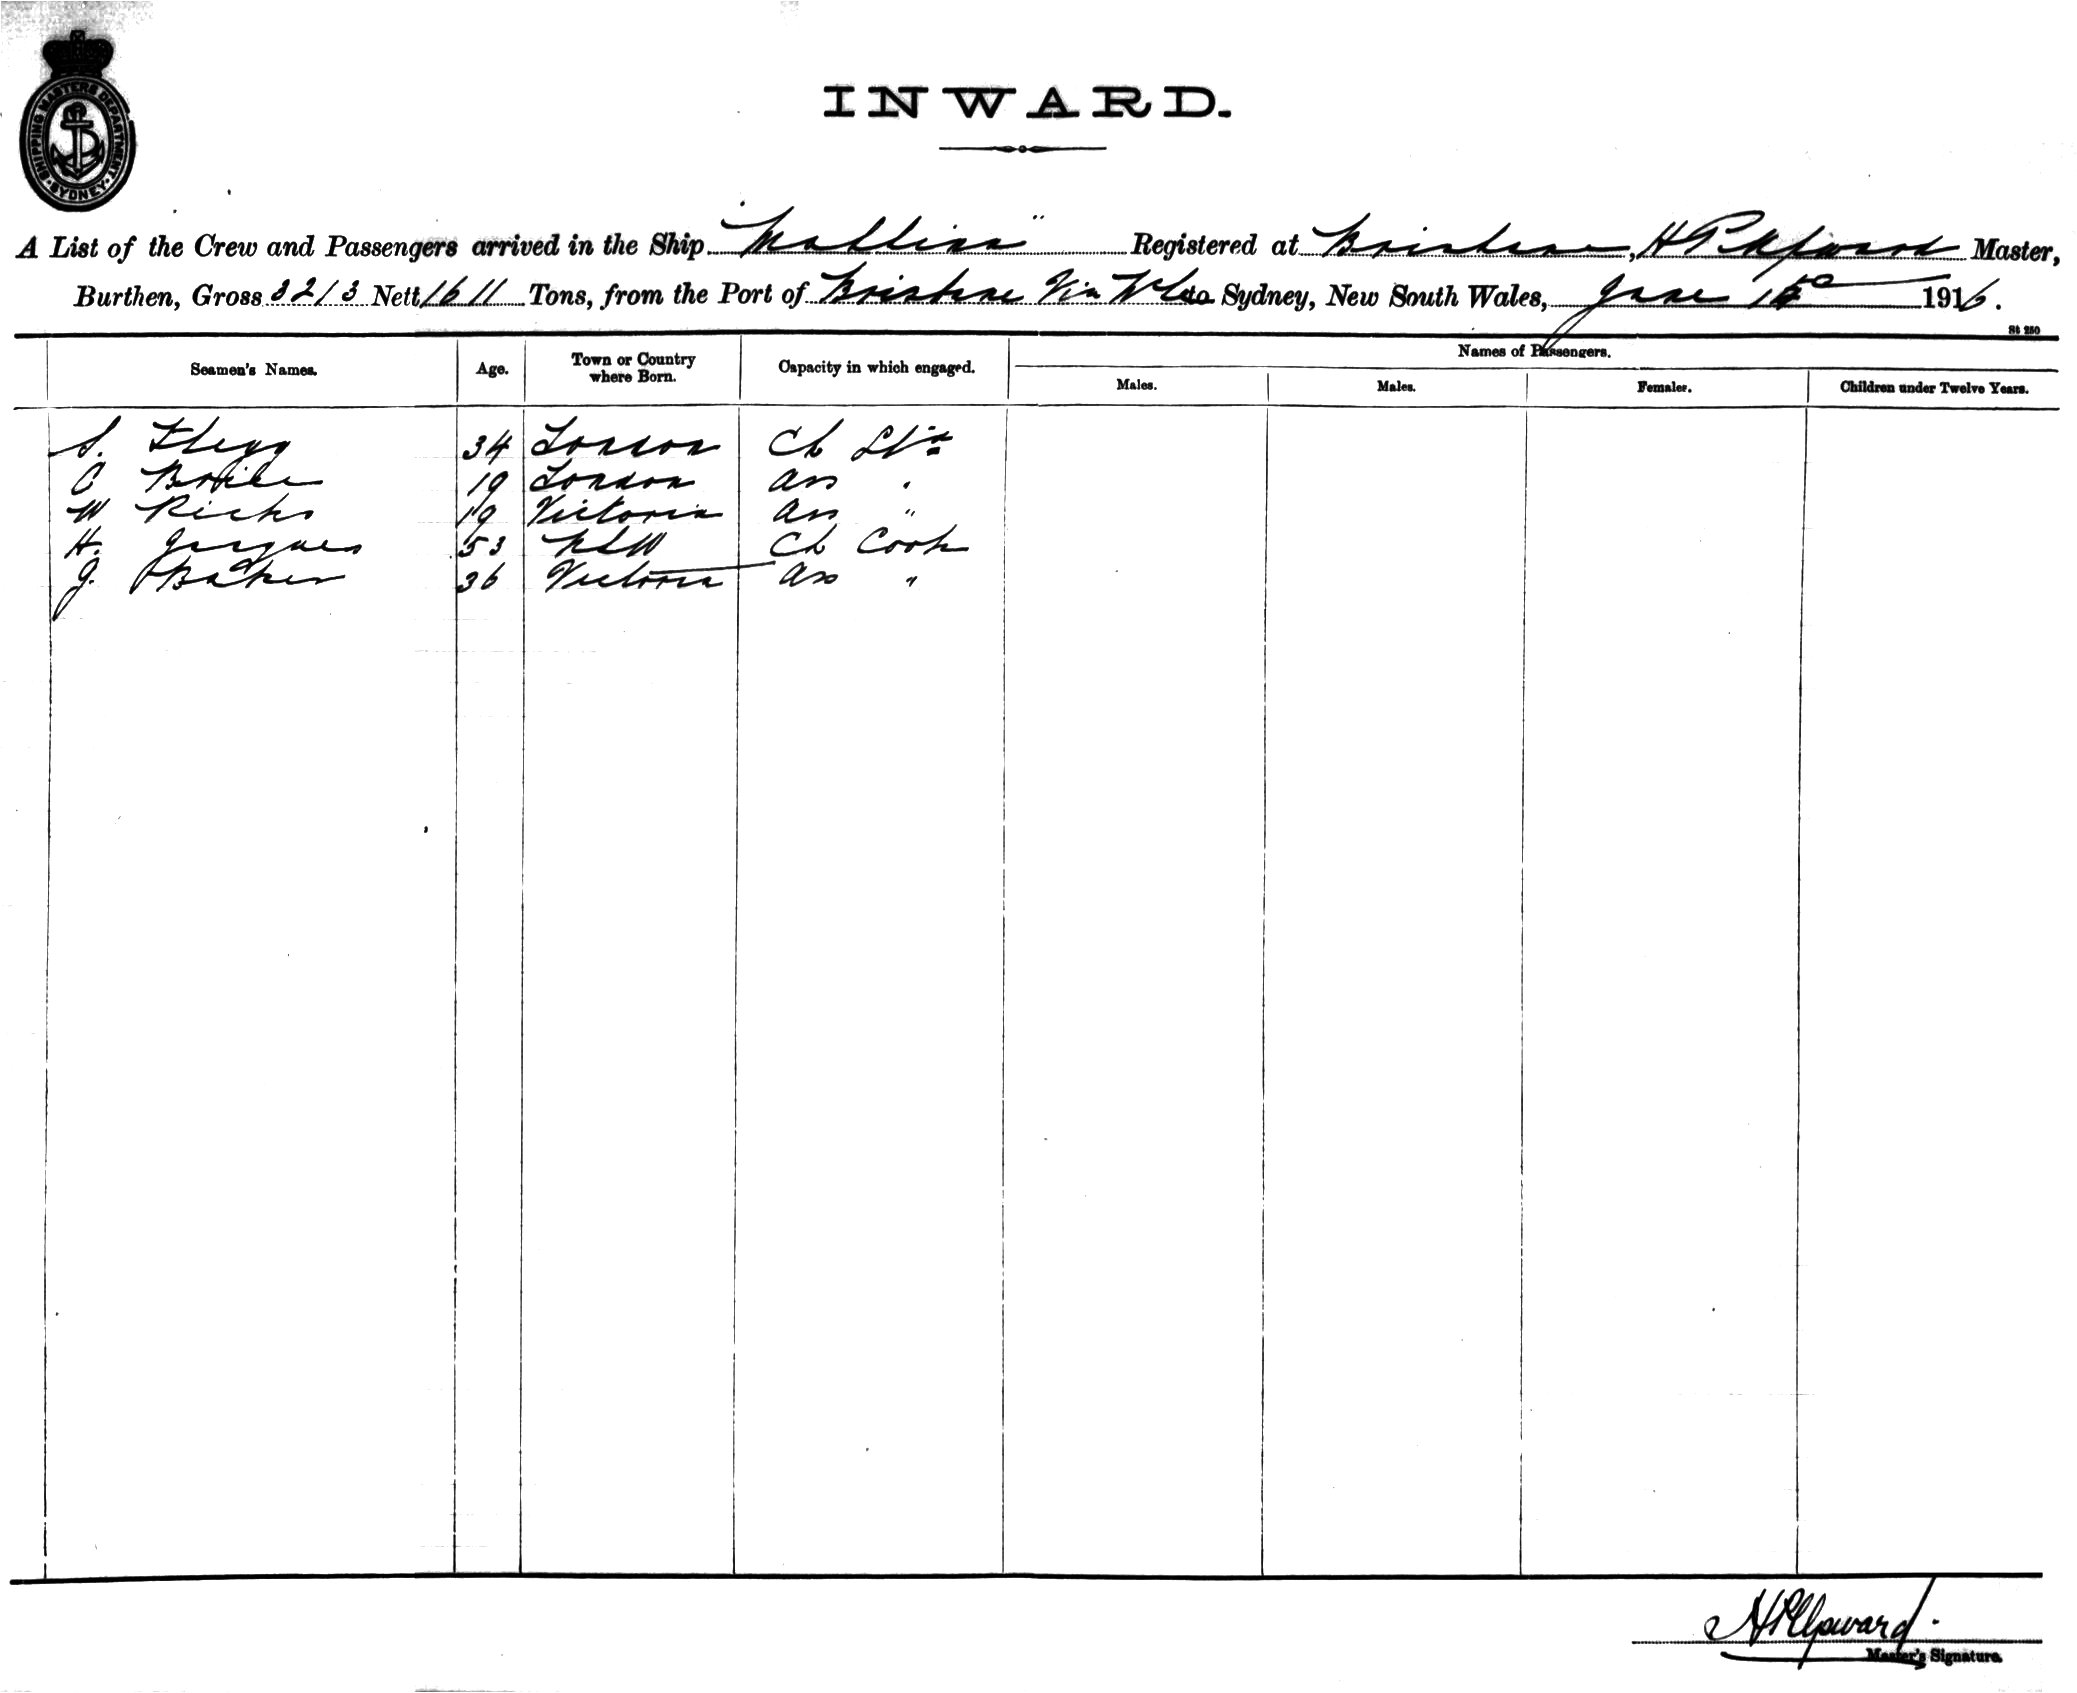 SHIPPING MASTERS DEPARTMENT
SYDNEY
INWARD.
A List of the Crew and Passengers arrived in the Ship "Mallina" Registered at Brisbane, H P Upward Master,
Burthen, Gross 3213 Nett 1611 Tons, from the Port of Brisbane Via to Sydney, New South Wales, June 1916.
St 250
Seamen's Names. Age. Town or Country where Born. Capacity in which engaged. Names of Passengers.
Males. Males. Females. Children under Twelve Years.
S. Flegg 34 London Ch Std
C 19 London Ass "
W Ricks 19 Victoria Ass "
H. Jaques 53 NSW Ch Cook
J. Baker 36 Victoria Ass "
H P Upward.
Master's Signature.